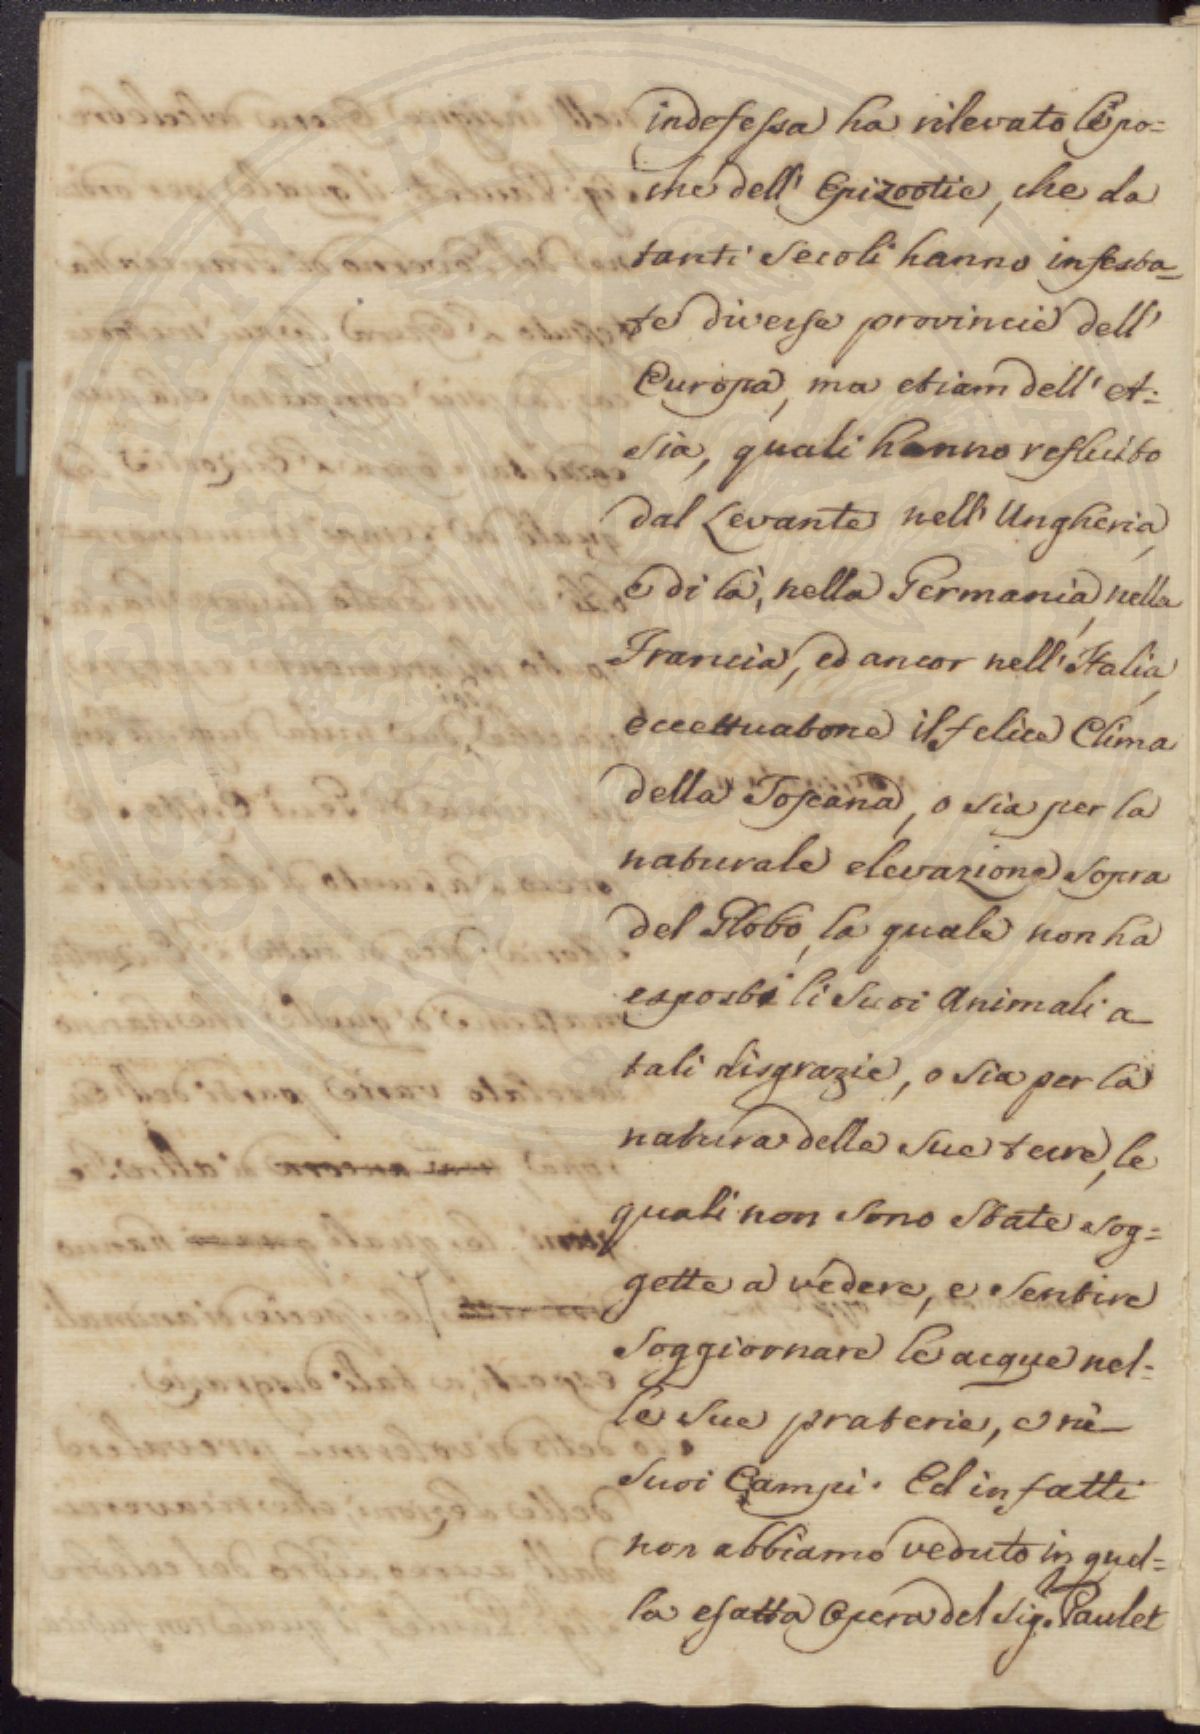 indefessa ha rilevato l'epo=
che dell' Epizootie, che da
tanti secoli hanno infesta=
te diverse provincie dell'
Europa, ma etiam dell' A=
sia, quali hanno refluito
dal Levante nell' Ungheria,
e di là, nella Germania, nella
Francia, ed ancor nell' Italia,
eccettuatone il felice Clima
della Toscana, o sia per la
naturale elevazione sopra
del Globo, la quale non ha
esposti li suoi Animali a
tali disgrazie, o sia per la
natura delle sue terre, le
quali non sono state sog=
gette a vedere, e sentire
soggiornare le acque nel=
le sue praterie, e nè
suoi Campi. Ed infatti
non abbiamo veduto in quel=
la esatta Opera del Sig. Paulet